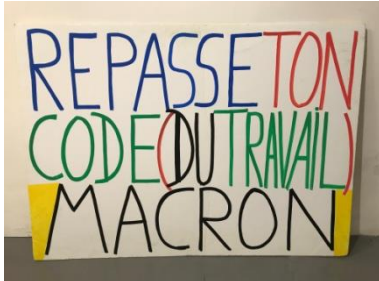 REPASSE TON
CODE (DU TRAVAIL)
MACRON